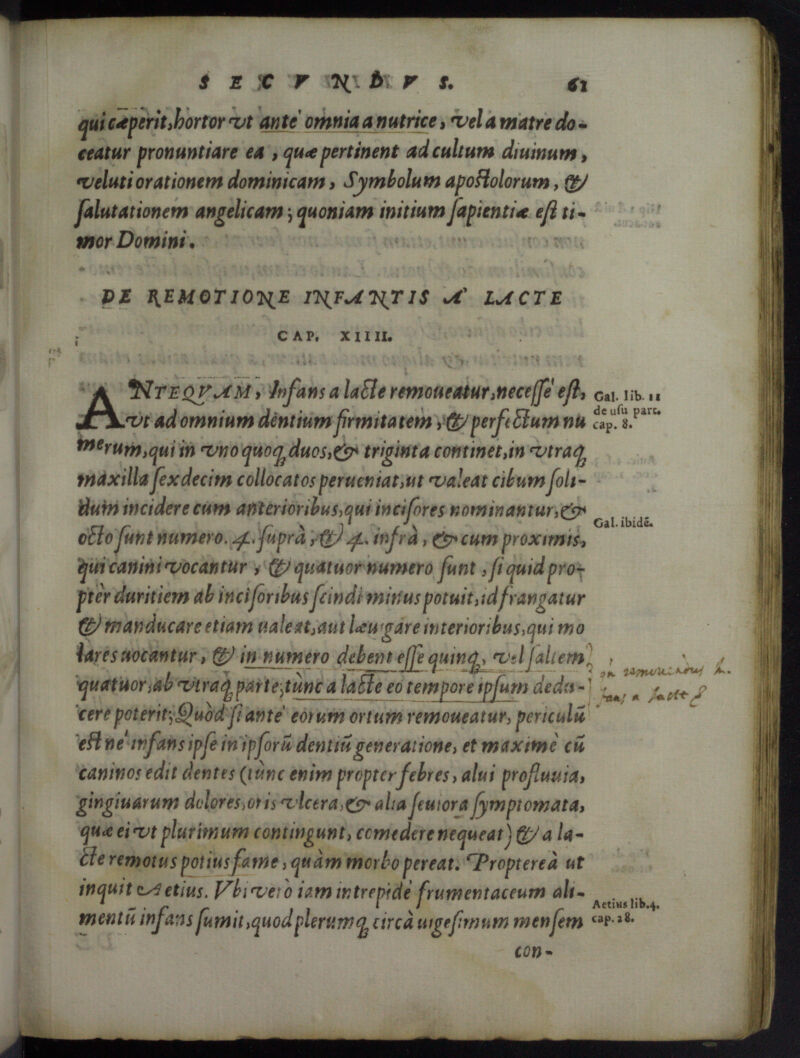 SECVNDVS. 61
qui cæperit, hortor vt ante omnia a nutrice, vel a matre do-
ceatur pronuntiare ea, quæ pertinent ad cultum diuinum,
veluti orationem dominicam, Symbolum apostolorum, &
salutationem angelicam; quoniam initium sapientiæ est ti-
mor Domini.
DE REMOTIONE INFANTIS A' LACTE
CAP. XIIII.
ANTEQVAM, Infans a lacte remoueatur, necesse est, Gal. lib. 11
vt ad omnium dentium firmitatem, & perfectum nu de usu part.
merum, qui in vno quoq; duos, & triginta continet, in vtraq; cap. 8.
maxilla sexdecim collocatos perueniat, ut valeat cibum soli-
dum incidere cum anterioribus, qui incisores nominantur, &
octo sunt numero. 4. suprà, & 4. infrà, & cum proximis, Gal. ibidē.
qui canini vocantur, & quatuor numero sunt, si quid pro-
pter duritiem ab incisoribus scindi minus potuit, id frangatur
& manducare etiam ualeat, aut læuigare interioribus, qui mo
lares uocantur, & in numero debent esse quinq;, vel saltem
quatuor, ab vtraq; parte; tunc a lacte eo tempore ipsum dedu-
cere poterit; Quòd si ante eorum ortum remoueatur, periculū
est ne infans ipse in ipsorū dentiū generatione, et maximè cū
caninos edit dentes (tunc enim propter febres, alui profluuia,
gingiuarum dolores, oris vlcera, & alia seuiora symptomata,
quæ ei vt plurimum contingunt, comedere nequeat) & a la-
cte remotus potius fame, quàm morbo pereat. Propterea ut
inquit Aetius. Vbi verò iam intrepidè frumentaceum ali-
mentū infans sumit, quod plerumq; circà uigesimum mensem Aetius lib. 4. cap. 28.
con-